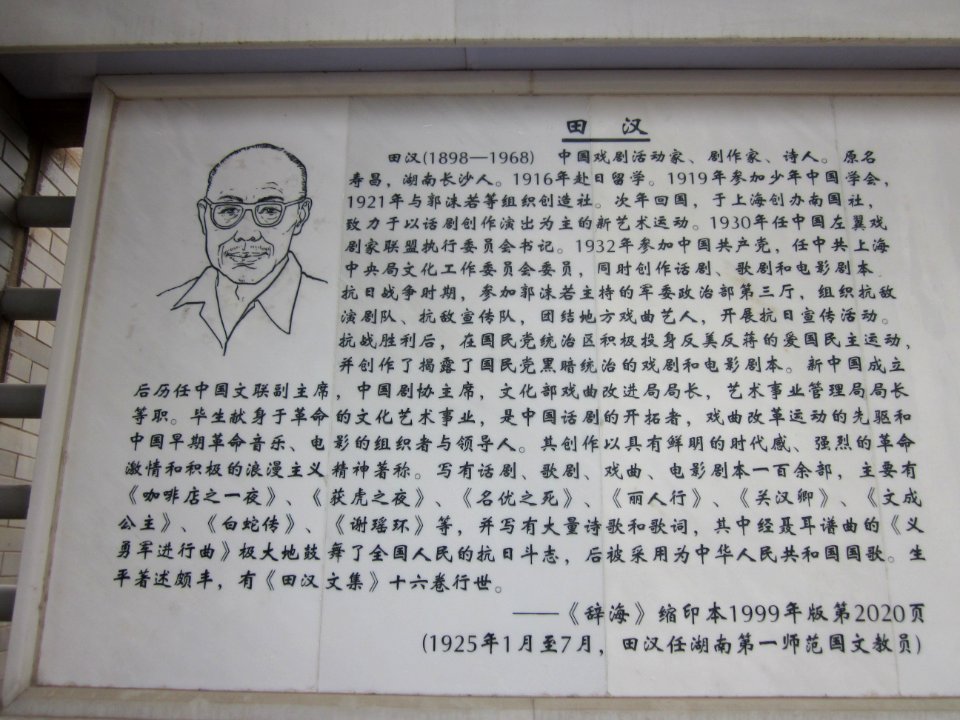 田 汉
田汉(1898—1968) 中国戏剧活动家、剧作家、诗人。原名
寿昌，湖南长沙人。1916年赴日留学。1919年参加少年中国学会，
1921年与郭沫若等组织创造社。次年回国，于上海创办南国社，
致力于以话剧创作演出为主的新艺术运动。1930年任中国左翼戏
剧家联盟执行委员会书记。1932年参加中国共产党，任中共上海
中央局文化工作委员会委员，同时创作话剧、歌剧和电影剧本
抗日战争时期，参加郭沫若主持的军委政治部第三厅，组织抗敌
演剧队、抗敌宣传队，团结地方戏曲艺人，开展抗日宣传活动。
抗战胜利后，在国民党统治区积极投身反美反蒋的爱国民主运动，
并创作了揭露了国民党黑暗统治的戏剧和电影剧本。新中国成立
后历任中国文联副主席，中国剧协主席，文化部戏曲改进局局长，艺术事业管理局局长
等职。毕生献身于革命的文化艺术事业，是中国话剧的开拓者，戏曲改革运动的先驱和
中国早期革命音乐、电影的组织者与领导人。其创作以具有鲜明的时代感、强烈的革命
激情和积极的浪漫主义精神著称。写有话剧、歌剧、戏曲、电影剧本一百余部，主要有
《咖啡店之一夜》、《获虎之夜》、《名优之死》、《丽人行》、《关汉卿》、《文成
公主》、《白蛇传》、《谢瑶环》等，并写有大量诗歌和歌词，其中经聂耳谱曲的《义
勇军进行曲》极大地鼓舞了全国人民的抗日斗志，后被采用为中华人民共和国国歌。生
平著述颇丰，有《田汉文集》十六卷行世。
——《辞海》缩印本1999年版第2020页
(1925年1月至7月，田汉任湖南第一师范国文教员)